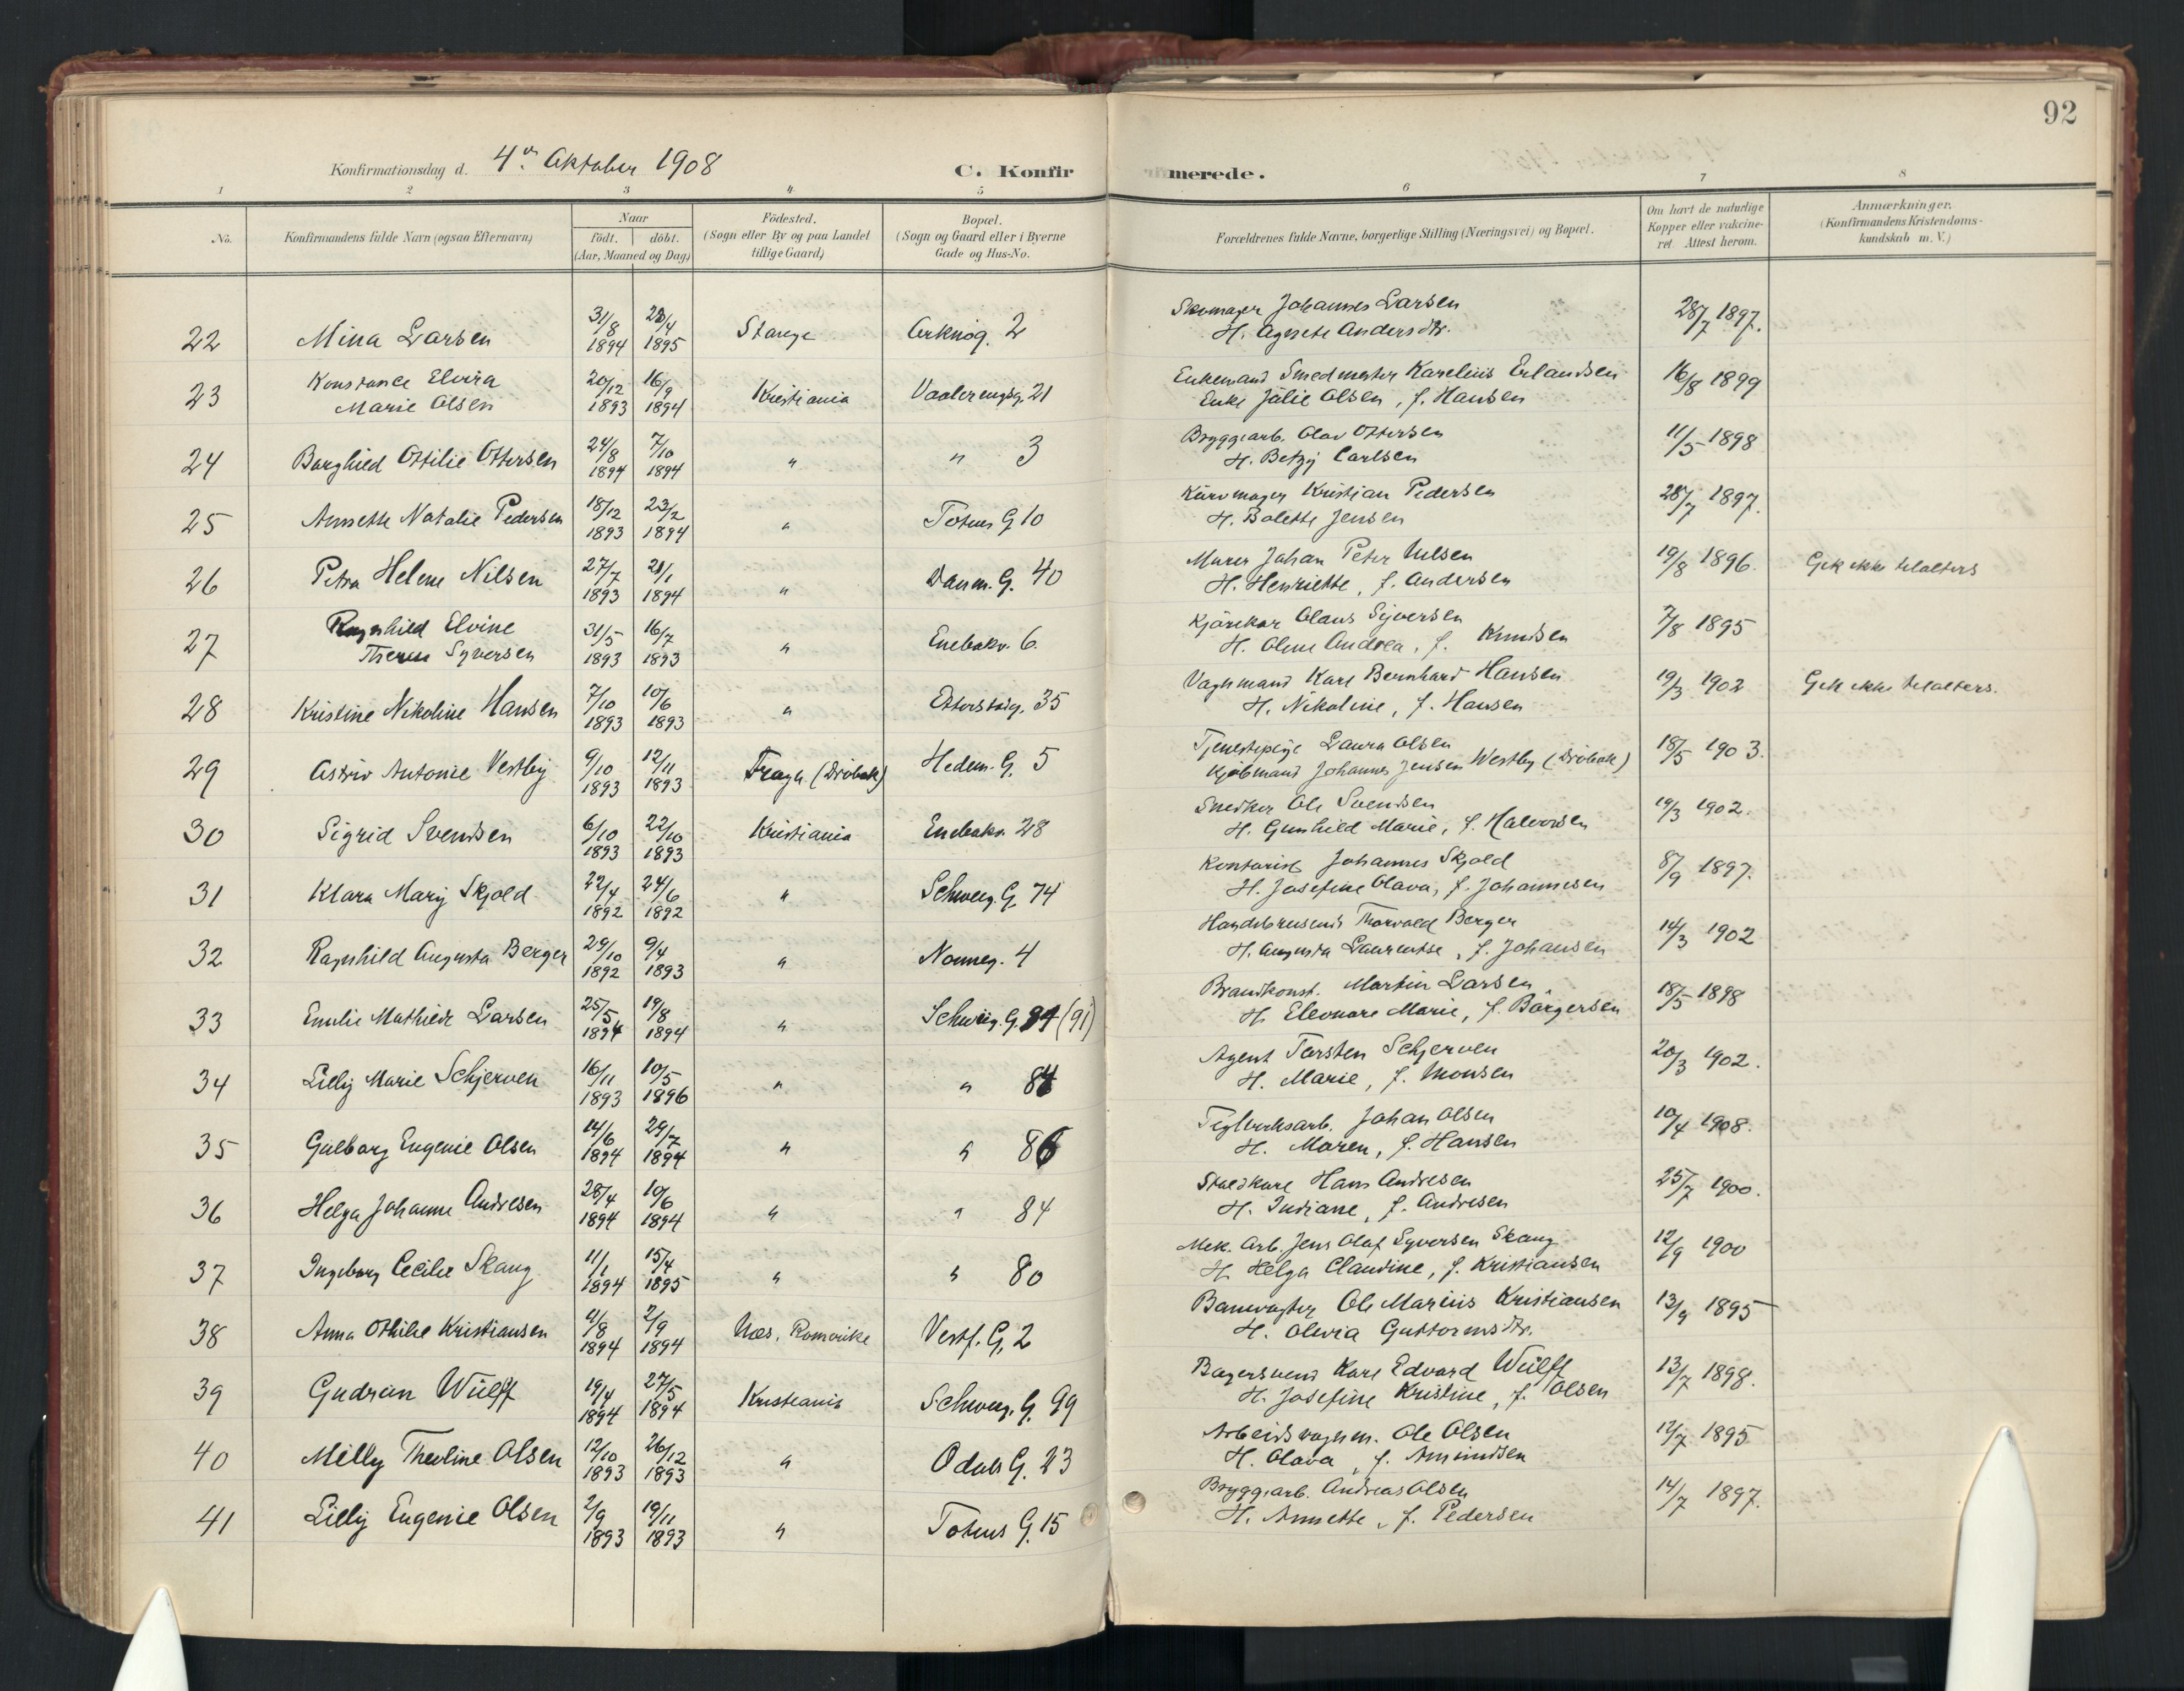 92
Konfirmationsdag d. 4de Oktober 1908
C. Konfirmerede.
1 2 3 4 5 6 7 8
No. Konfirmandens fulde Navn (ogsaa Efternavn) Naar født. døbt. (Aar, Maaned og Dag) Födested. (Sogn eller By og paa Landet tillige Gaard) Bopæl. (Sogn og Gaard eller i Byerne Gade og Hus-No. Forældrenes fulde Navne, borgerlige Stilling (Næringsvei) og Bopæl. Om havt de naturlige Kopper eller vakcineret. Attest herom. Anmærkninger. (Konfirmandens Kristendomskundskab m. V.)
22 Mina Larsen 31/8 1894 28/4 1895 Stange Arknög. 2 Skomager Johannes Larsen 28/7 1897.
H. Agnete Andersdtr.
23 Konstance Elvira Marie Olsen 20/12 1893 16/9 1894 Kristiania Vaalerengsg. 21 Enkemand Smedmester Karelius Erlandsen 16/8 1899
Enke Julie Olsen, f. Hansen
24 Borghild Ottilie Ottersen 24/8 1894 7/10 1894 " " 3 Bryggearb. Olav Ottersen 11/5 1898
H. Betzy Carlsen
25 Annette Natalie Pedersen 18/12 1893 23/2 1894 " Totens G 10 Kurvmager Kristian Pedersen 28/7 1897.
H. Bolette Jensen
26 Petra Helene Nilsen 27/7 1893 21/1 1894 " Danm. G. 40 Murer Johan Peter Nilsen 19/8 1896. Gik ikke tilalters
H. Henriette, f. Andersen
27 Ragnhild Elvine Therese Syversen 31/5 1893 16/7 1893 " Enebakv. 6. Kjörekar Olaus Syversen 7/8 1895
H. Oline Andrea, f. Knudsen
28 Kristine Nikoline Hansen 7/10 1893 10/6 1893 " Etterstadg. 35 Vognmand Karl Bernhard Hansen 19/3 1902 Gik ikke tilalters.
H. Nikoline, f. Hansen
29 Astrid Antonie Vestby 9/10 1893 12/11 1893 Fragn (Dröbak) Hedem. G. 5 Tjenestepige Laura Olsen 18/5 1903.
Kjöbmand Johannes Jensen Westby (Dröbak)
30 Sigrid Svendsen 6/10 1893 22/10 1893 Kristiania Enebakv. 28 Snedker Ole Svendsen 19/3 1902.
H. Gunhild Marie, f. Halvorsen
31 Klara Mary Skjold 22/4 1892 24/6 1892 " Schweig. G. 74 Kontorist Johannes Skjold 8/9 1897.
H. Josefine Olava, f. Johannesen
32 Ragnhild Augusta Berger 29/10 1892 9/4 1893 " Nonneg. 4 Handelsreisende Thorvald Berger 14/3 1902
H. Augusta Laurentse, f. Johansen
33 Emilie Mathilde Larsen 25/5 1894 19/8 1894 " Schweig. G. 84 (91) Brandkonst. Martin Larsen 18/5 1898
H. Eleonore Marie, f. Börgersen
34 Lilly Marie Schjerven 16/11 1893 10/5 1896 " " 84 Agent Torsten Schjerven 20/3 1902.
H. Marie, f. Monsen
35 Gulborg Eugenie Olsen 14/6 1894 29/7 1894 " " 86 Teglverksarb. Johan Olsen 10/4 1908.
H. Maren, f. Hansen
36 Helga Johanne Andresen 28/4 1894 10/6 1894 " " 84 Staldkarl Hans Andresen 25/7 1900.
H. Indiane, f. Andresen
37 Ingeborg Cecilie Skaug 11/1 1894 15/4 1895 " " 80 Mek. Arb. Jens Olaf Syversen Skaug 12/9 1900
H. Helga Claudine, f. Kristiansen
38 Anna Othilie Kristiansen 4/8 1894 2/9 1894 Næs, Romerike Vestf. G. 2 Banevogter Ole Marius Kristiansen 13/9 1895
H. Olivia Guttormsdtr.
39 Gudrun Wülff 19/4 1894 27/5 1894 Kristiania Schweig. G. 99 Bagersvend Karl Edvard Wülff 13/7 1898.
H. Josefine Kristine, f. Olsen
40 Milly Theoline Olsen 12/10 1893 26/12 1893 " Odals G. 23 Arbeidsvognm. Ole Olsen 12/7 1895
H. Olava, f. Amundsen
41 Lilly Eugenie Olsen 2/9 1893 19/11 1893 " Totens G. 15 Bryggearb. Andreas Olsen 14/7 1897.
H. Annette, f. Pedersen